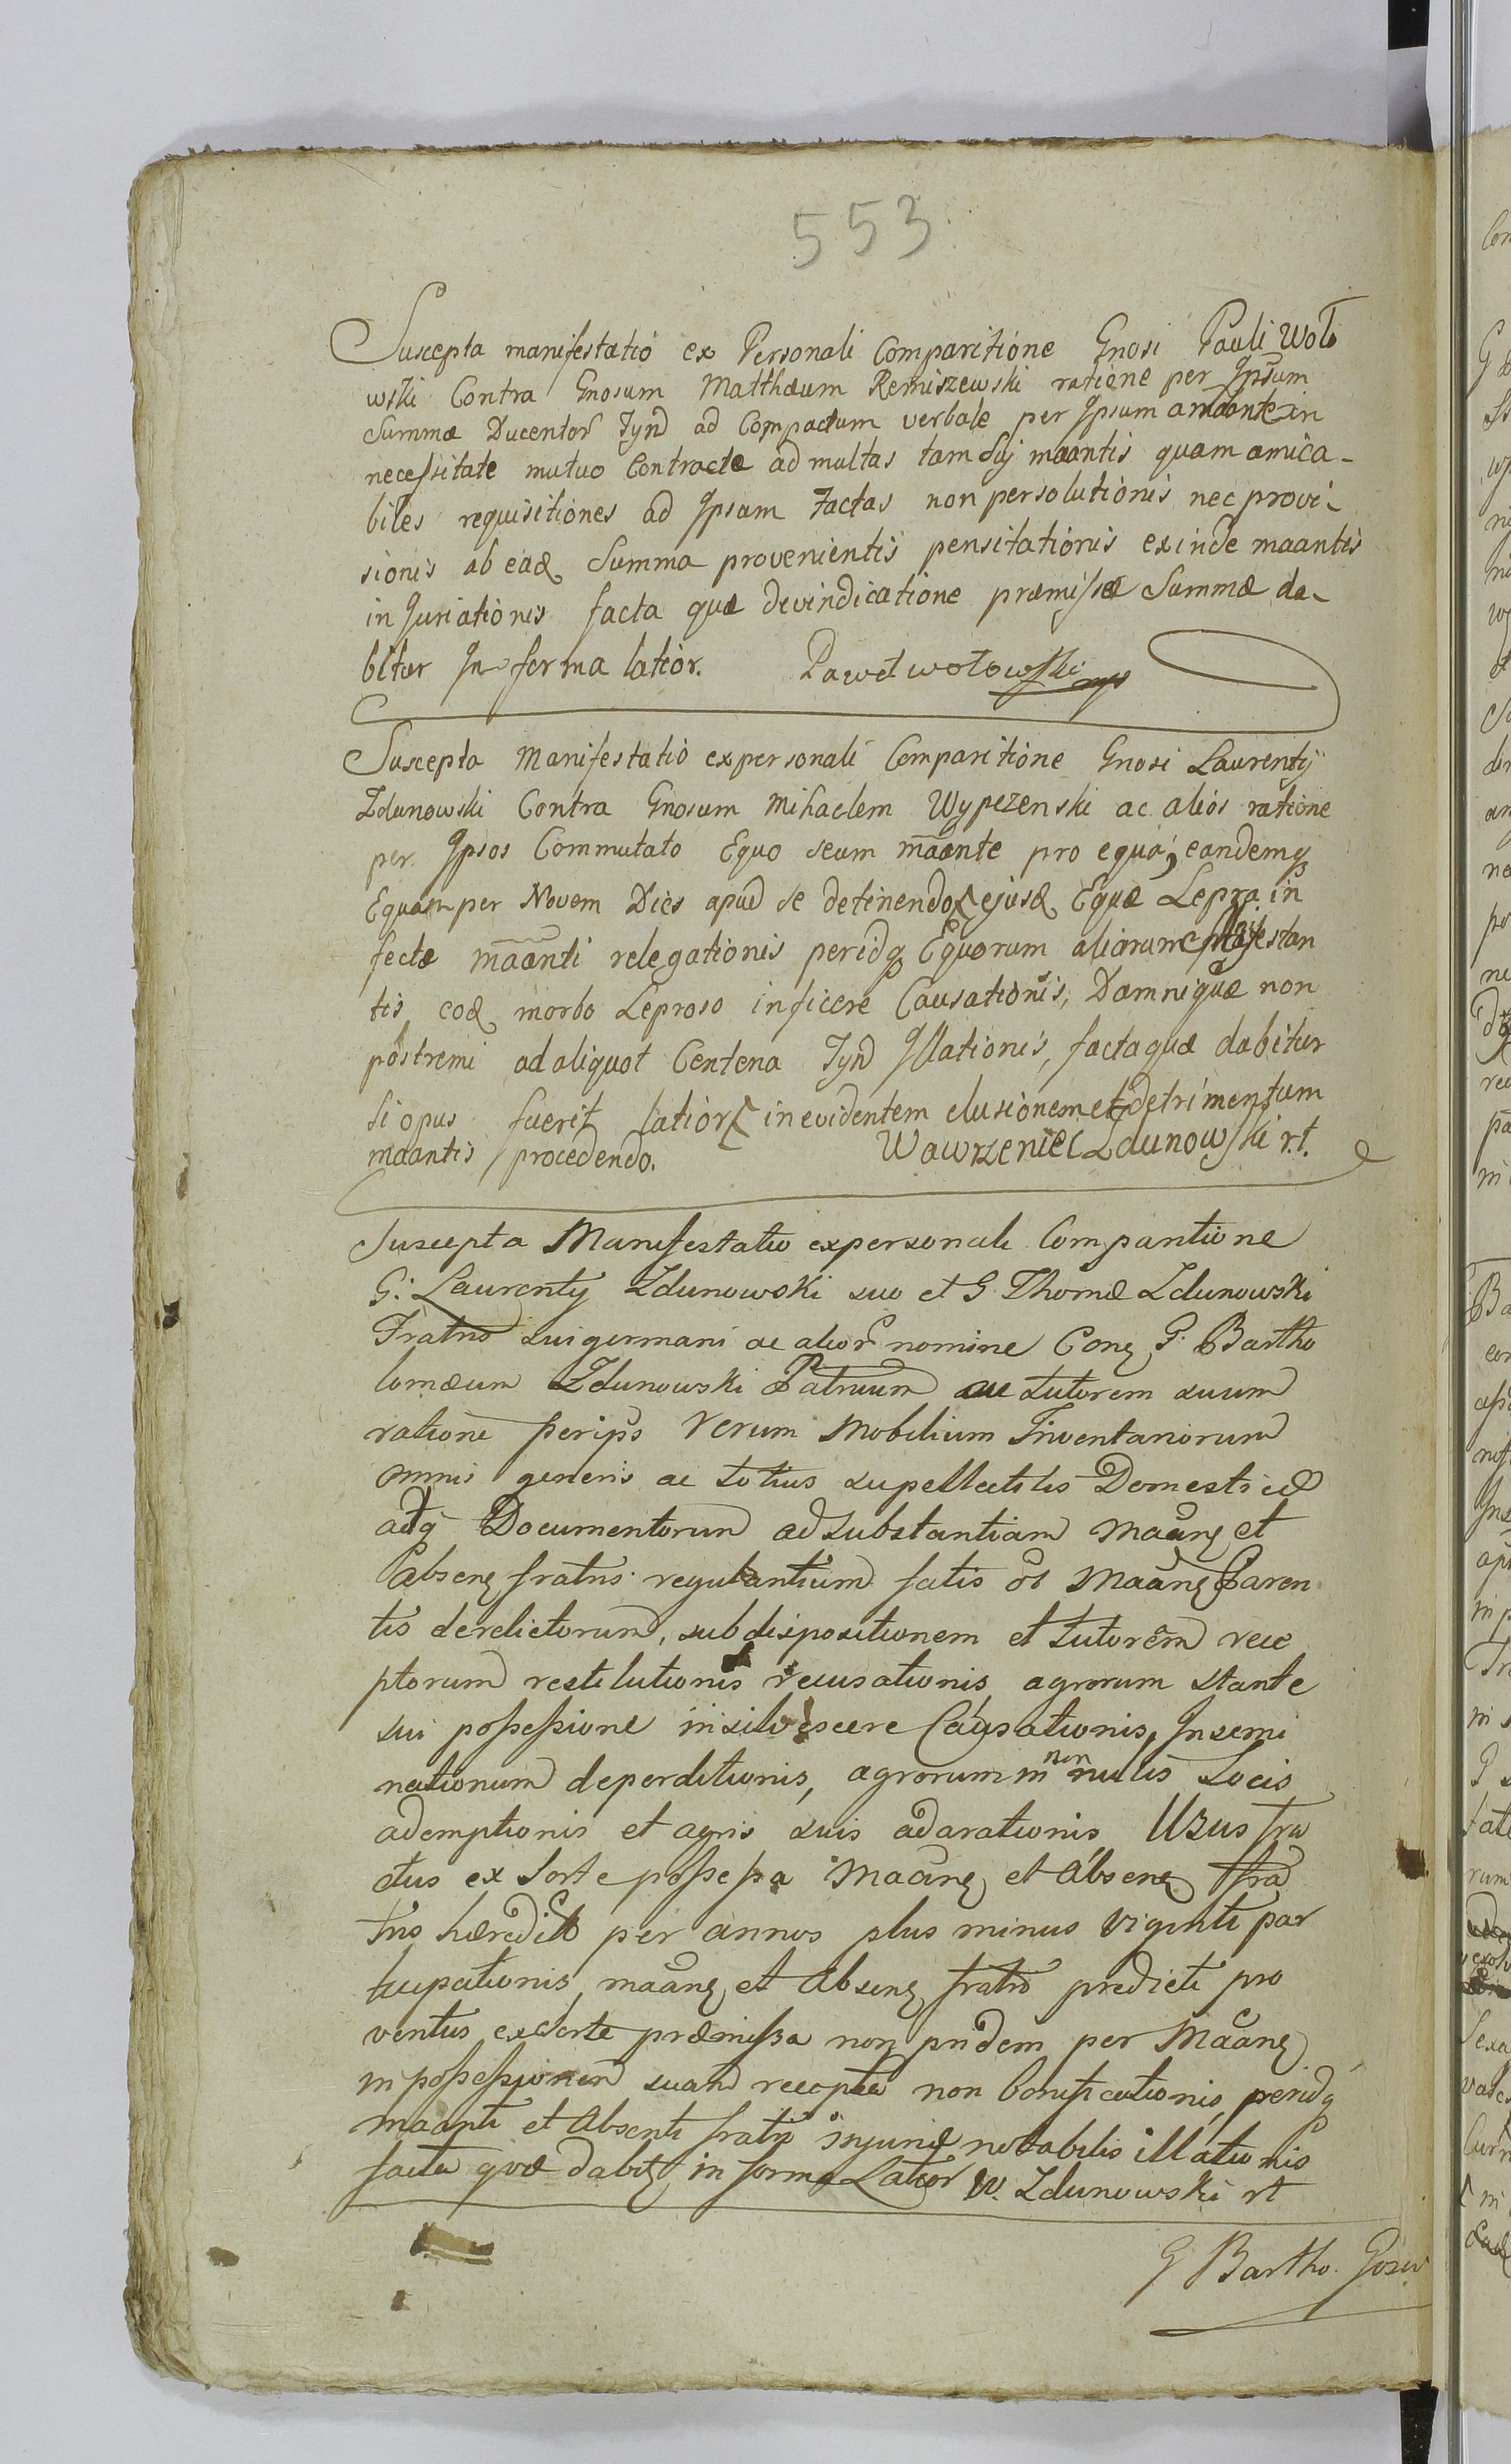 553
Suscepta manifestatio ex Personali Comparitione Gnosi Pauli Woło
wski Contra Gnosum Matthæum Remiszewski ratione per Ipsum
Summæ Ducentor Tynf ad Compactum verbale per Ipsum a maante in
necessitate mutuo Contractæ ad multas tam Sui maantis quam amica-
biles requisitiones ad Ipsam factas non persolutionis nec provi-
sionis ab eadq Summa provenientis pensitationis exinde maantis
injuriationis facta quæ devindicatione præmissæ Summæ da-
bitur In forma latior. Paweł wołowski mp
Suscepta Manifestatio ex personali Comparitione Gnosi Laurentij
Zdunowski Contra Gnosum Mihaelem Wypczenski ac alios ratione
per Ipsos Commutato Equo secum maante pro equa, eandemq
Equam per Novem Dies apud se detinendo ejusd Equæ Lepra in
fectæ maanti relegationis peridq Equorum aliorum
tis eod morbo Leproso inficere Causationis, Damnique non
postremi ad aliquot Centena Tynf Illationis, facta quæ dabitur
si opus fuerit latior in evidentem elusionem et detrimentum
maantis procedendo. Wawrzeniec Zdunowski r.t.
Suscepta Manifestatio ex personali Comparitione
G: Laurentij Zdunowski suo et G Thomæ Zdunowski
Fratris sui germani ac alior nomine Con G. Bartho
lomæum Zdunowski Patruum ac tutorem suum
ratione per ips rerum Mobilium Inventariorum
omnis generis ac totius supellectilis Domesticæ
adq Documentorum ad substantiam maan et
absen fratris regulantium fatis ol Maan Paren
tis derelictorum, sub dispositionem et tutorem rece
ptorum restitutionis recusationis, agrorum stante
sui possessione insilvescere Causationis, Insemi
nationum deperditionis, agrorum in non nullis Locis
ademptionis et agris suis adarationis Usus fru
ctus ex Sorte possessa Maan et Absen fra
tris hæredit per annos plus minus viginti par
ticipationis, maan et Absen fratris predicti pro
ventus ex Sorte præmissa non pridem per Maan
in possessionem suam recepta non bonificationis, peridq
maanti et Absenti fratri injuriæ notabilis illationis
facta quæ dabit in forma Latior W. Zdunowski rt
G Bartho.